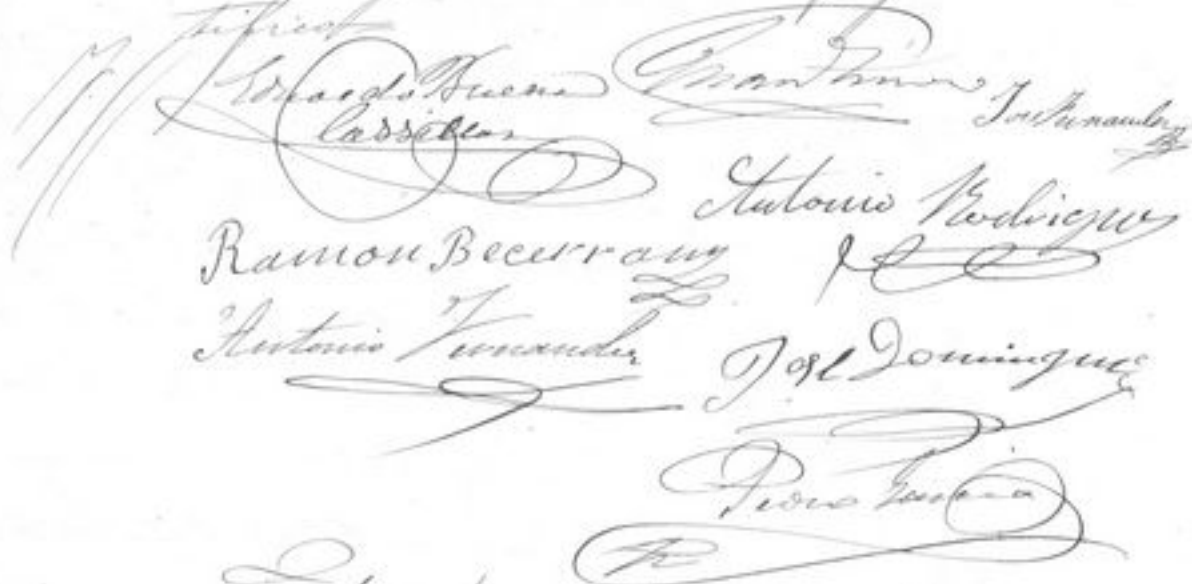 Eduardo Bueno
Cassillas
Juan
Jose Fernandez
Antonio Rodriguez
Ramon Becerra
Antonio Fernandez
Jose Dominguez
Pedro Garcia